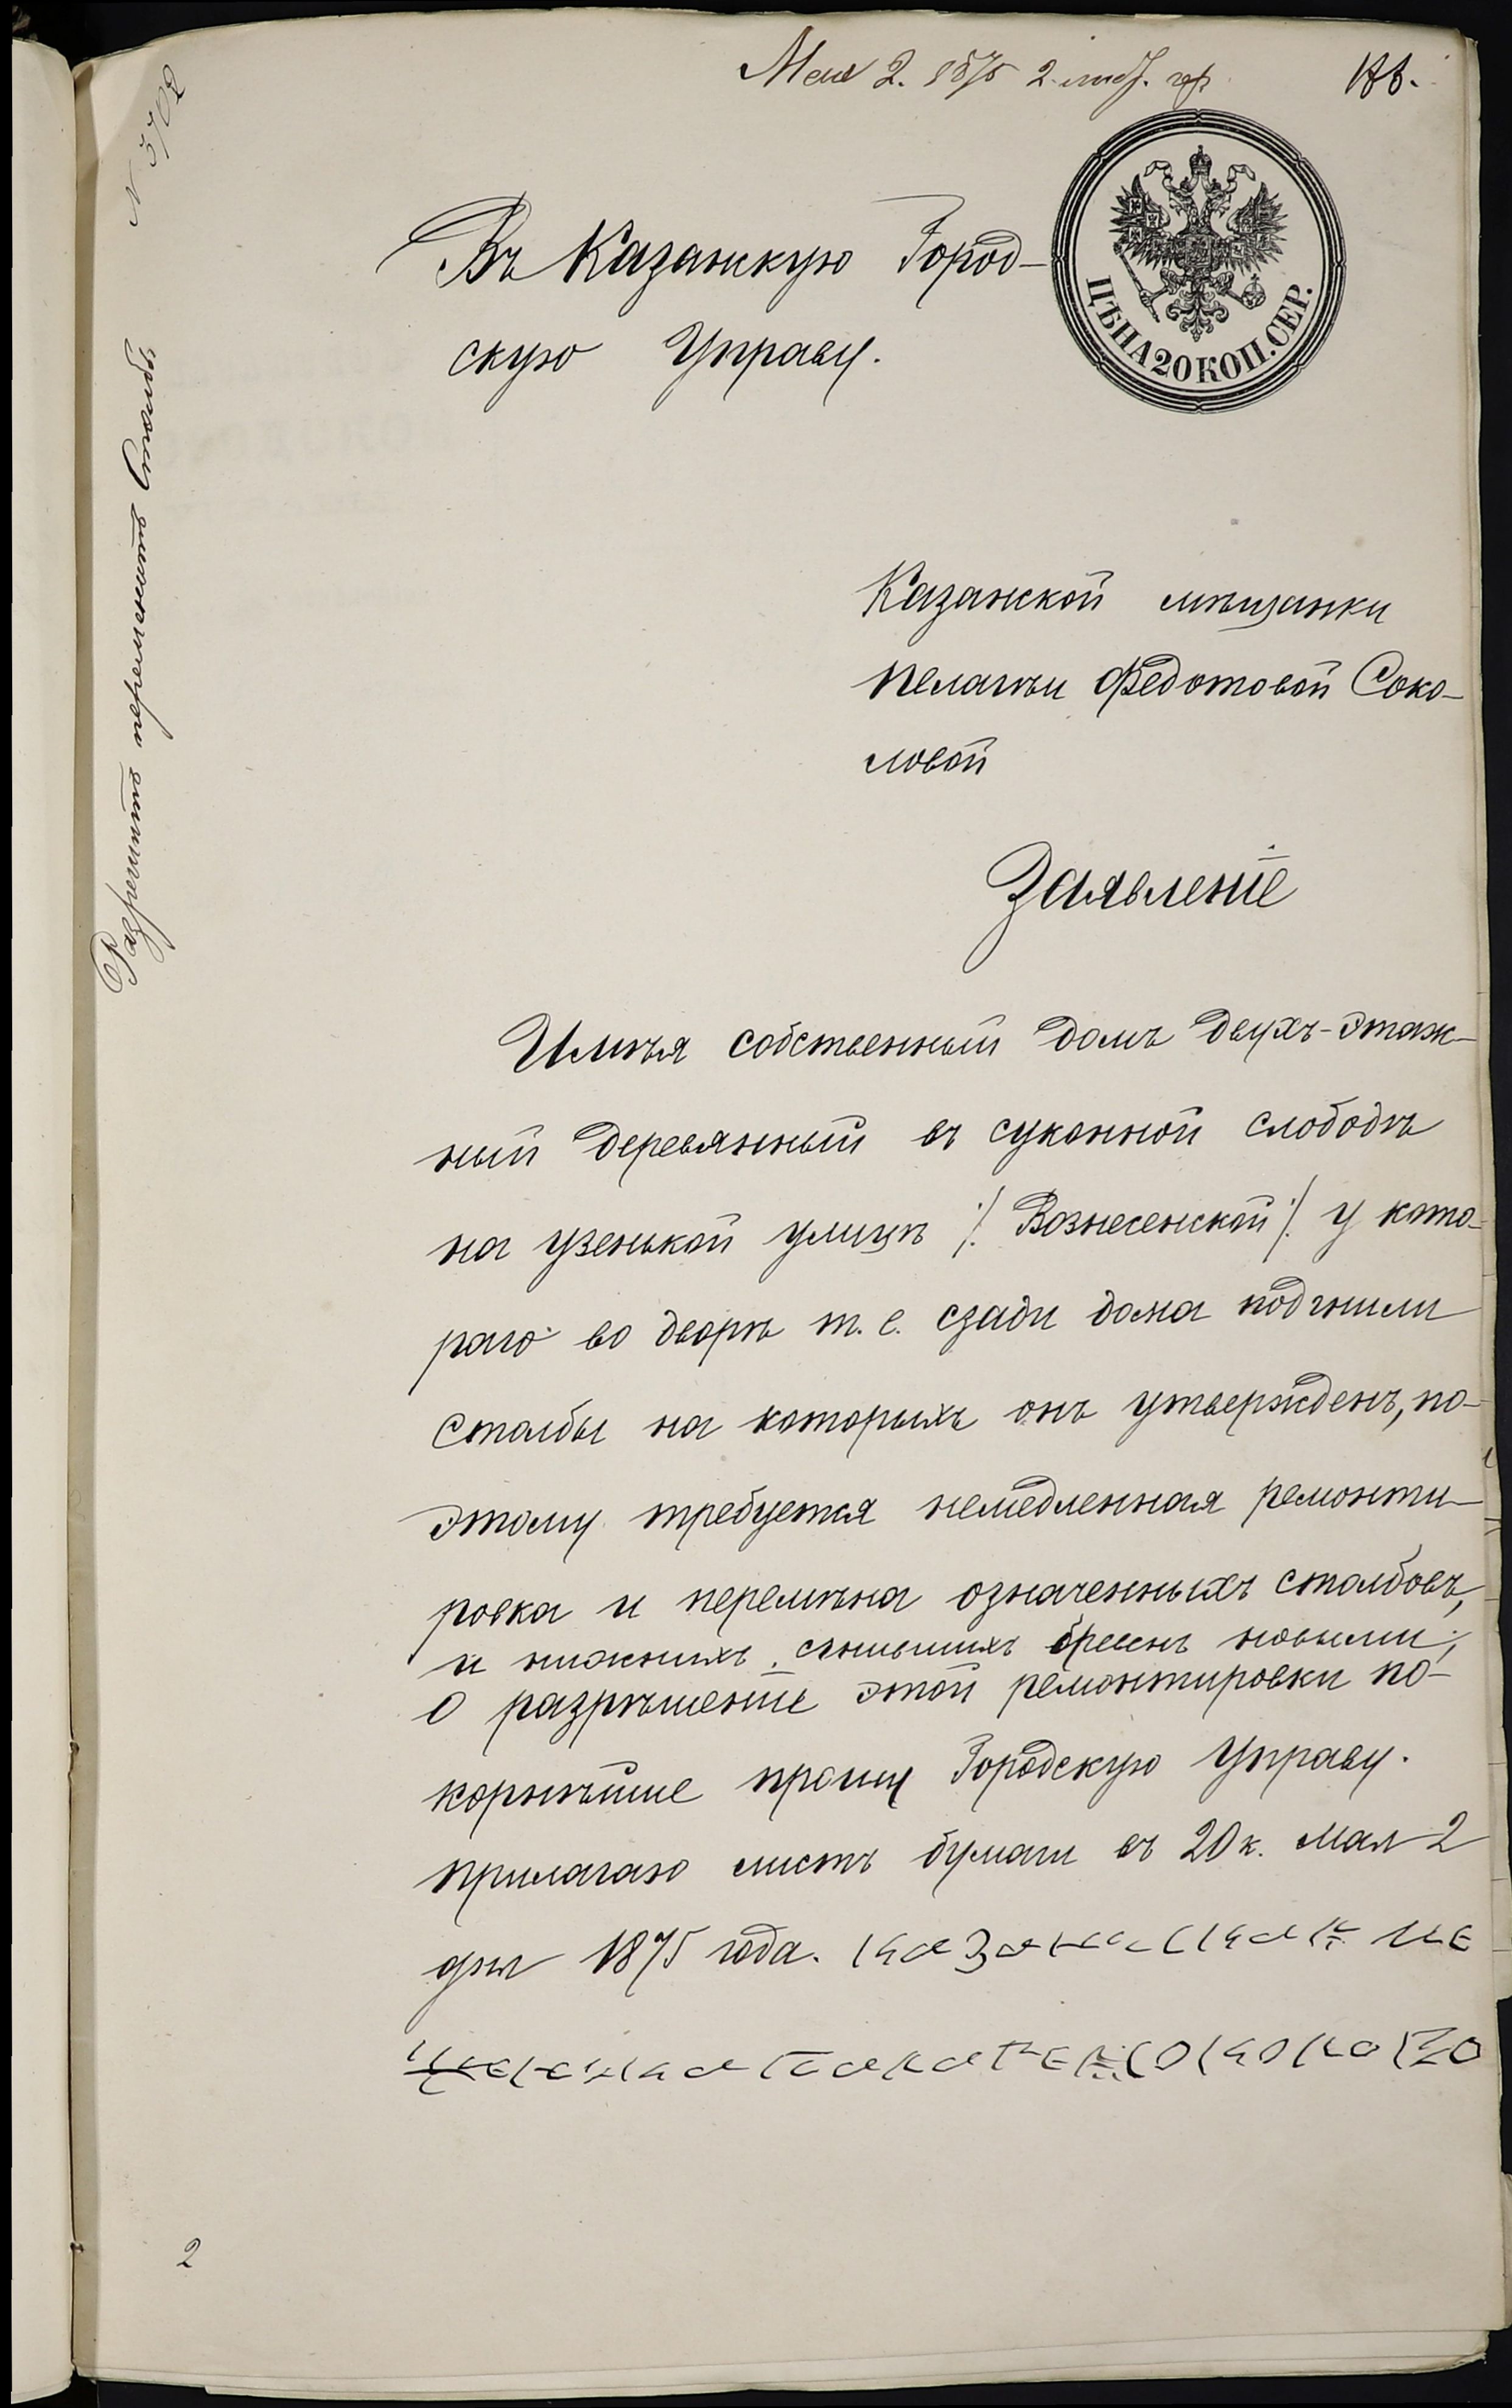 Мая 2. 1875 2
188.
N 5702
Разрешить переменить Столбы
Въ Казанскую Город-
скую Управу.
ЦѢНА 20 КОП. СЕР.
Казанской мѣщанки
Пелагѣи Федотовой Соко-
ловой
Заявленіе
Имѣя собственный домъ двухъ-этаж-
ный деревянный въ суконной слободѣ
на узенькой улицѣ /: Вознесенской :/ у кото-
раго во дворѣ т. е. сзади дома подгнили
столбы на которыхъ онъ утвержденъ, по-
этому требуется немедленная ремонти-
ровка и перемѣна означенныхъ столбовъ,
и нижнихъ сгнившихъ бревенъ новыми;
О разрѣшеніе этой ремонтировки по-
корнѣйше прошу Городскую Управу.
Прилагаю листъ бумаги въ 20 к. Мая 2
дня 1875 года. Казанская ме
2